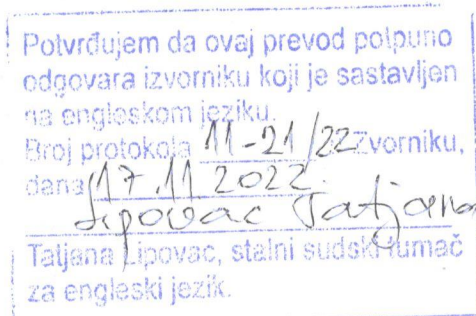 Potvrđujem da ovaj prevod potpuno
odgovara izvorniku koji je sastavljen
na engleskom jeziku.
Broj protokola 11-21/22 Zvorniku,
dana 17.11 2022.
Lipovac Tatjana
Tatjana Lipovac, stalni sudski tumač
za engleski jezik.